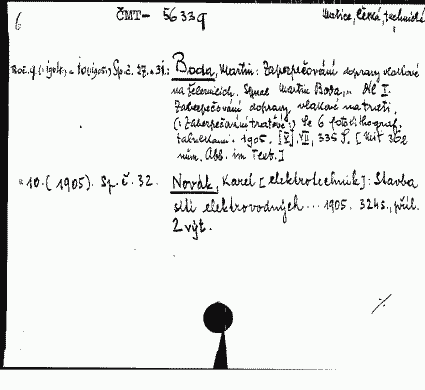 6 ČMT - 56339 Matice, Česká, technická
Roč. 9. (1904), a 10 (1905) Sp. č. 27. a 31.: Boda, Martin: Zabezpečování dopravy vlakové
na železnicích. Martin Boda, Díl I.
Zabezpečování dopravy vlakové na trati.
(: Zabezpečování traťové :) Se 6 fotolithograf.
tabulkami. 1905. [V], VII, 335 S. [Mit 302
num. Abb. im Text.]
" 10. (1905). Sp. č. 32. Novák, Karel [elektrotechnik]: Stavba
sítí elektrovodných ... 1905. 324 s., příl.
2 výt.